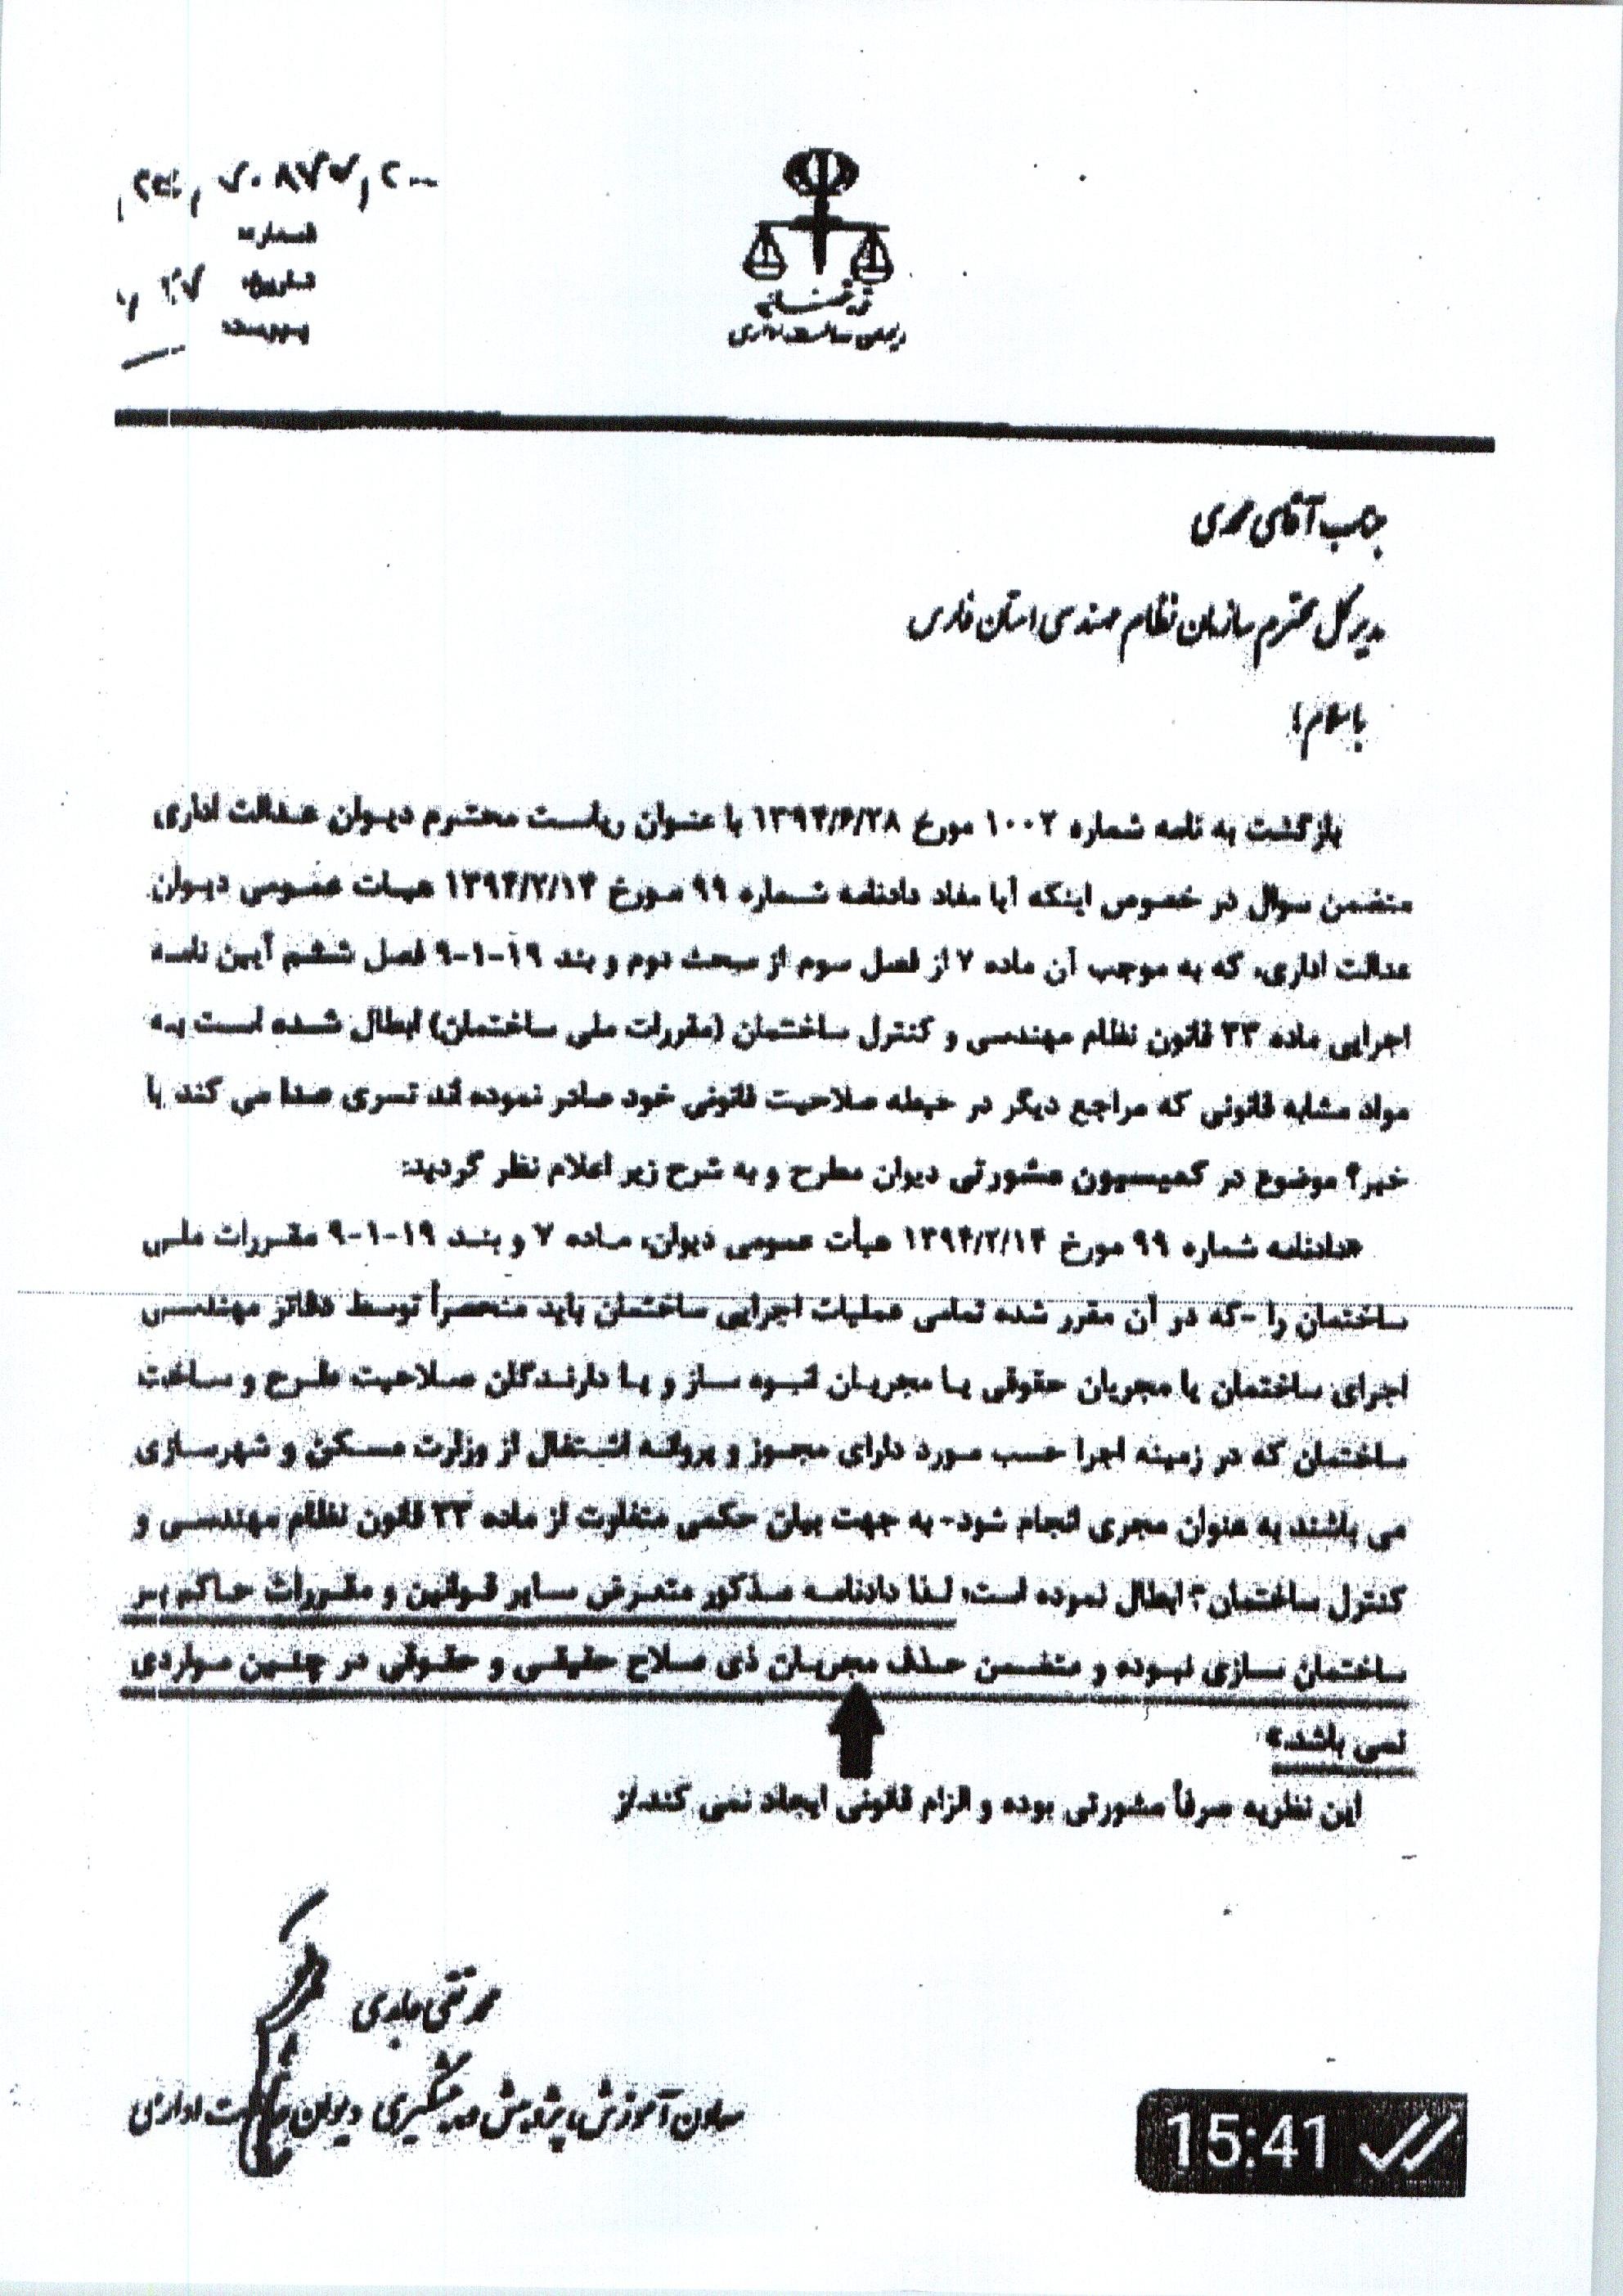 شماره:
تاریخ:
پیوست:
قوه قضائیه
دیوان عدالت اداری
جناب آقای
مدیر کل محترم سازمان نظام مهندسی استان فارس
با سلام؛
بازگشت به نامه شماره ۱۰۰۲ مورخ ۱۳۹۴/۶/۲۸ با عنوان ریاست محترم دیوان عدالت اداری
متضمن سوال در خصوص اینکه آیا مفاد دادنامه شماره ۹۹ مورخ ۱۳۹۴/۲/۱۴ هیات عمومی دیوان
عدالت اداری، که به موجب آن ماده ۷ از فصل سوم از مبحث دوم و بند ۱۹-۱-۹ فصل ششم آیین نامه
اجرایی ماده ۳۳ قانون نظام مهندسی و کنترل ساختمان (مقررات ملی ساختمان) ابطال شده است به
مواد مشابه قانونی که مراجع دیگر در حیطه صلاحیت قانونی خود صادر نموده اند تسری پیدا می کند یا
خیر؟ موضوع در کمیسیون مشورتی دیوان مطرح و به شرح زیر اعلام نظر گردید:
«دادنامه شماره ۹۹ مورخ ۱۳۹۴/۲/۱۴ هیأت عمومی دیوان، ماده ۷ و بند ۱۹-۱-۹ مقررات ملی
ساختمان را -که در آن مقرر شده تمامی عملیات اجرایی ساختمان باید منحصراً توسط دفاتر مهندسی
اجرای ساختمان یا مجریان حقوقی یا مجریان انبوه ساز و یا دارندگان صلاحیت طرح و ساخت
ساختمان که در زمینه اجرا حسب مورد دارای مجوز و پروانه اشتغال از وزارت مسکن و شهرسازی
می باشند به عنوان مجری انجام شود- به جهت بیان حکمی متفاوت از ماده ۳۳ قانون نظام مهندسی و
کنترل ساختمان؛ ابطال نموده است؛ لذا دادنامه مذکور متعرض سایر قوانین و مقررات حاکم بر
ساختمان سازی نبوده و متضمن حذف مجریان ذی صلاح حقیقی و حقوقی در چنین مواردی
نمی باشد.»
این نظریه صرفاً مشورتی بوده و الزام قانونی ایجاد نمی کند./ز
معاون آموزش، پژوهش و پیشگیری دیوان عدالت اداری
15:41